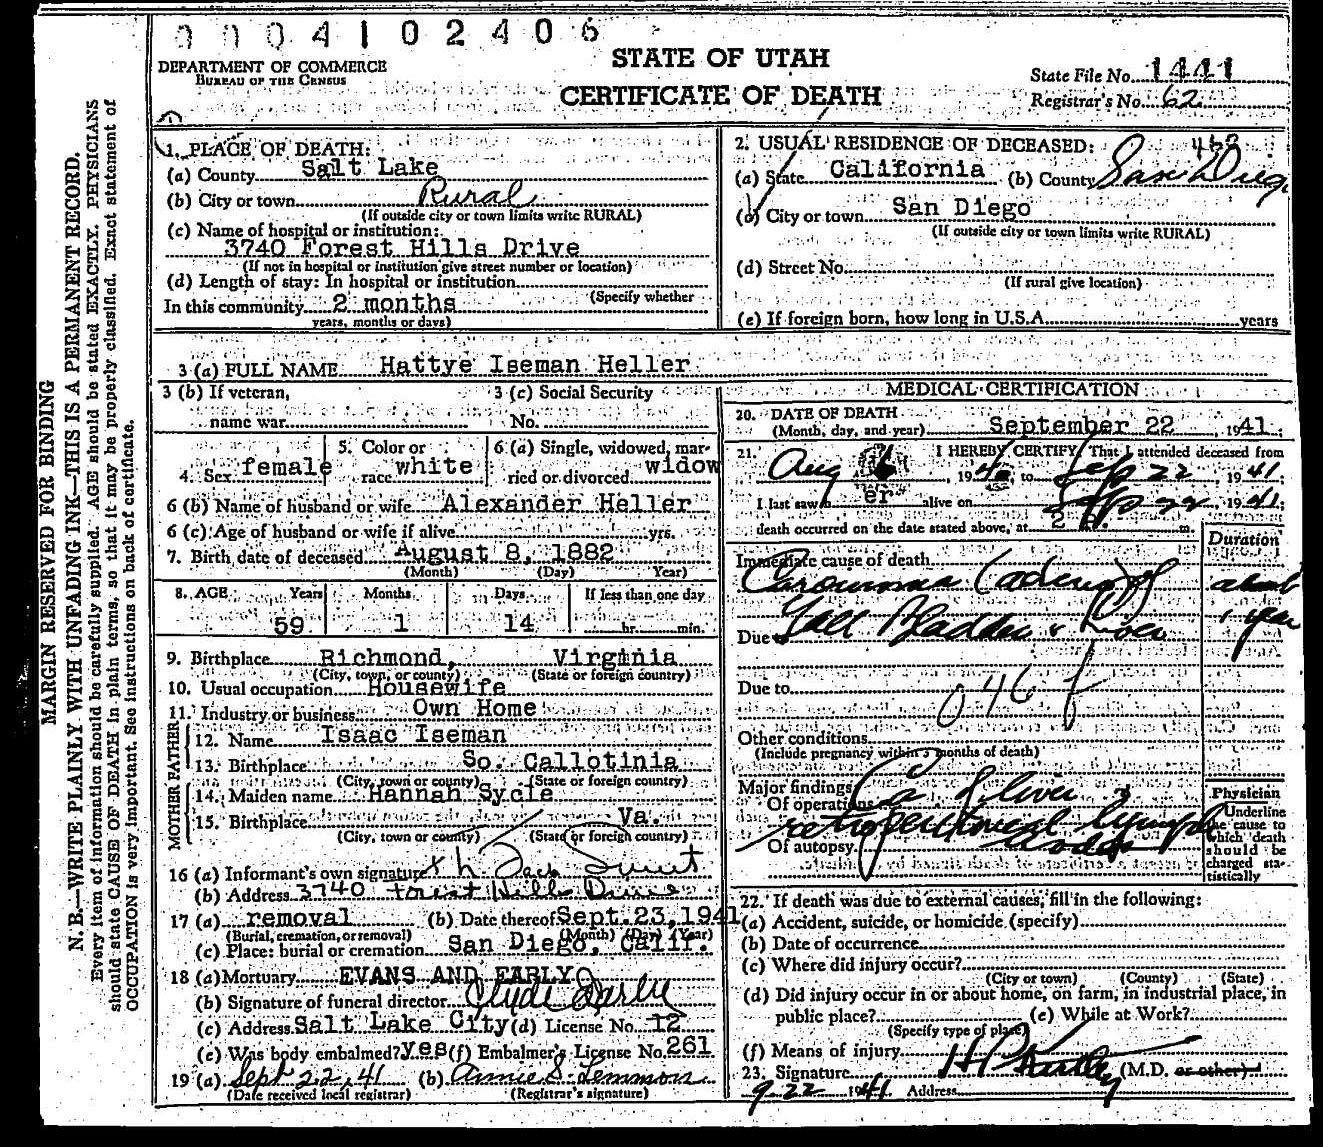 0004102406
DEPARTMENT OF COMMERCE
BUREAU OF THE CENSUS
STATE OF UTAH
CERTIFICATE OF DEATH
State File No. 1441
Registrar's No. 62
MARGIN RESERVED FOR BINDING
N. B.—WRITE PLAINLY WITH UNFADING INK—THIS IS A PERMANENT RECORD.
Every item of information should be carefully supplied. AGE should be stated EXACTLY. PHYSICIANS
should state CAUSE OF DEATH in plain terms, so that it may be properly classified. Exact statement of
OCCUPATION is very important. See instructions on back of certificate.
1. PLACE OF DEATH:
(a) County Salt Lake
(b) City or town Rural
(If outside city or town limits write RURAL)
(c) Name of hospital or institution:
3740 Forest Hills Drive
(If not in hospital or institution give street number or location)
(d) Length of stay: In hospital or institution
(Specify whether
In this community 2 months
years, months or days)
2. USUAL RESIDENCE OF DECEASED:
(a) State California (b) County San Diego
(c) City or town San Diego
(If outside city or town limits write RURAL)
(d) Street No.
(If rural give location)
(e) If foreign born, how long in U.S.A. years
3 (a) FULL NAME Hattye Iseman Heller
3 (b) If veteran,
name war
3 (c) Social Security
No.
4. Sex female
5. Color or
race white
6 (a) Single, widowed, mar-
ried or divorced widow
6 (b) Name of husband or wife Alexander Heller
6 (c) Age of husband or wife if alive yrs.
7. Birth date of deceased August 8, 1882
(Month) (Day) Year)
8. AGE Years Months Days If less than one day
59 1 14 hr. min.
9. Birthplace Richmond, Virginia
(City, town, or county) (State or foreign country)
10. Usual occupation Housewife
11. Industry or business Own Home
FATHER
12. Name Isaac Iseman
13. Birthplace So. Callotinia
(City, town or county) (State or foreign country)
MOTHER
14. Maiden name Hannah Sycle
15. Birthplace Va.
(City, town or county) (State or foreign country)
16 (a) Informant's own signature
(b) Address 3740 Forest Hills Drive
17 (a) removal (b) Date thereof Sept. 23, 1941
(Burial, cremation, or removal) (Month) (Day) (Year)
(c) Place: burial or cremation San Diego, Calif.
18 (a) Mortuary EVANS AND EARLY
(b) Signature of funeral director Clyde
(c) Address Salt Lake City (d) License No. 12
(e) Was body embalmed? yes (f) Embalmer's License No. 261
19 (a) Sept 22, 41 (b) Annie S. Lemmon
(Date received local registrar) (Registrar's signature)
MEDICAL CERTIFICATION
20. DATE OF DEATH
(Month, day, and year) September 22, 1941;
21. I HEREBY CERTIFY, That I attended deceased from
Aug 6, 19 to Sep 22, 1941
I last saw h er alive on Sep 22, 1941;
death occurred on the date stated above, at 2 m.
Duration
Immediate cause of death
Carcinoma (adeno) of about
Due to Gall Bladder & Liver 1 year
Due to
046 f
Other conditions
(Include pregnancy within 3 months of death)
Major findings:
Of operations Ca of liver &
retroperitoneal lymph
Of autopsy nodes
Physician
Underline
the cause to
which death
should be
charged sta-
tistically
22. If death was due to external causes, fill in the following:
(a) Accident, suicide, or homicide (specify)
(b) Date of occurrence
(c) Where did injury occur?
(City or town) (County) (State)
(d) Did injury occur in or about home, on farm, in industrial place, in
public place? (e) While at Work?
(Specify type of place)
(f) Means of injury
23. Signature (M.D. or other)
9-22 1941 Address